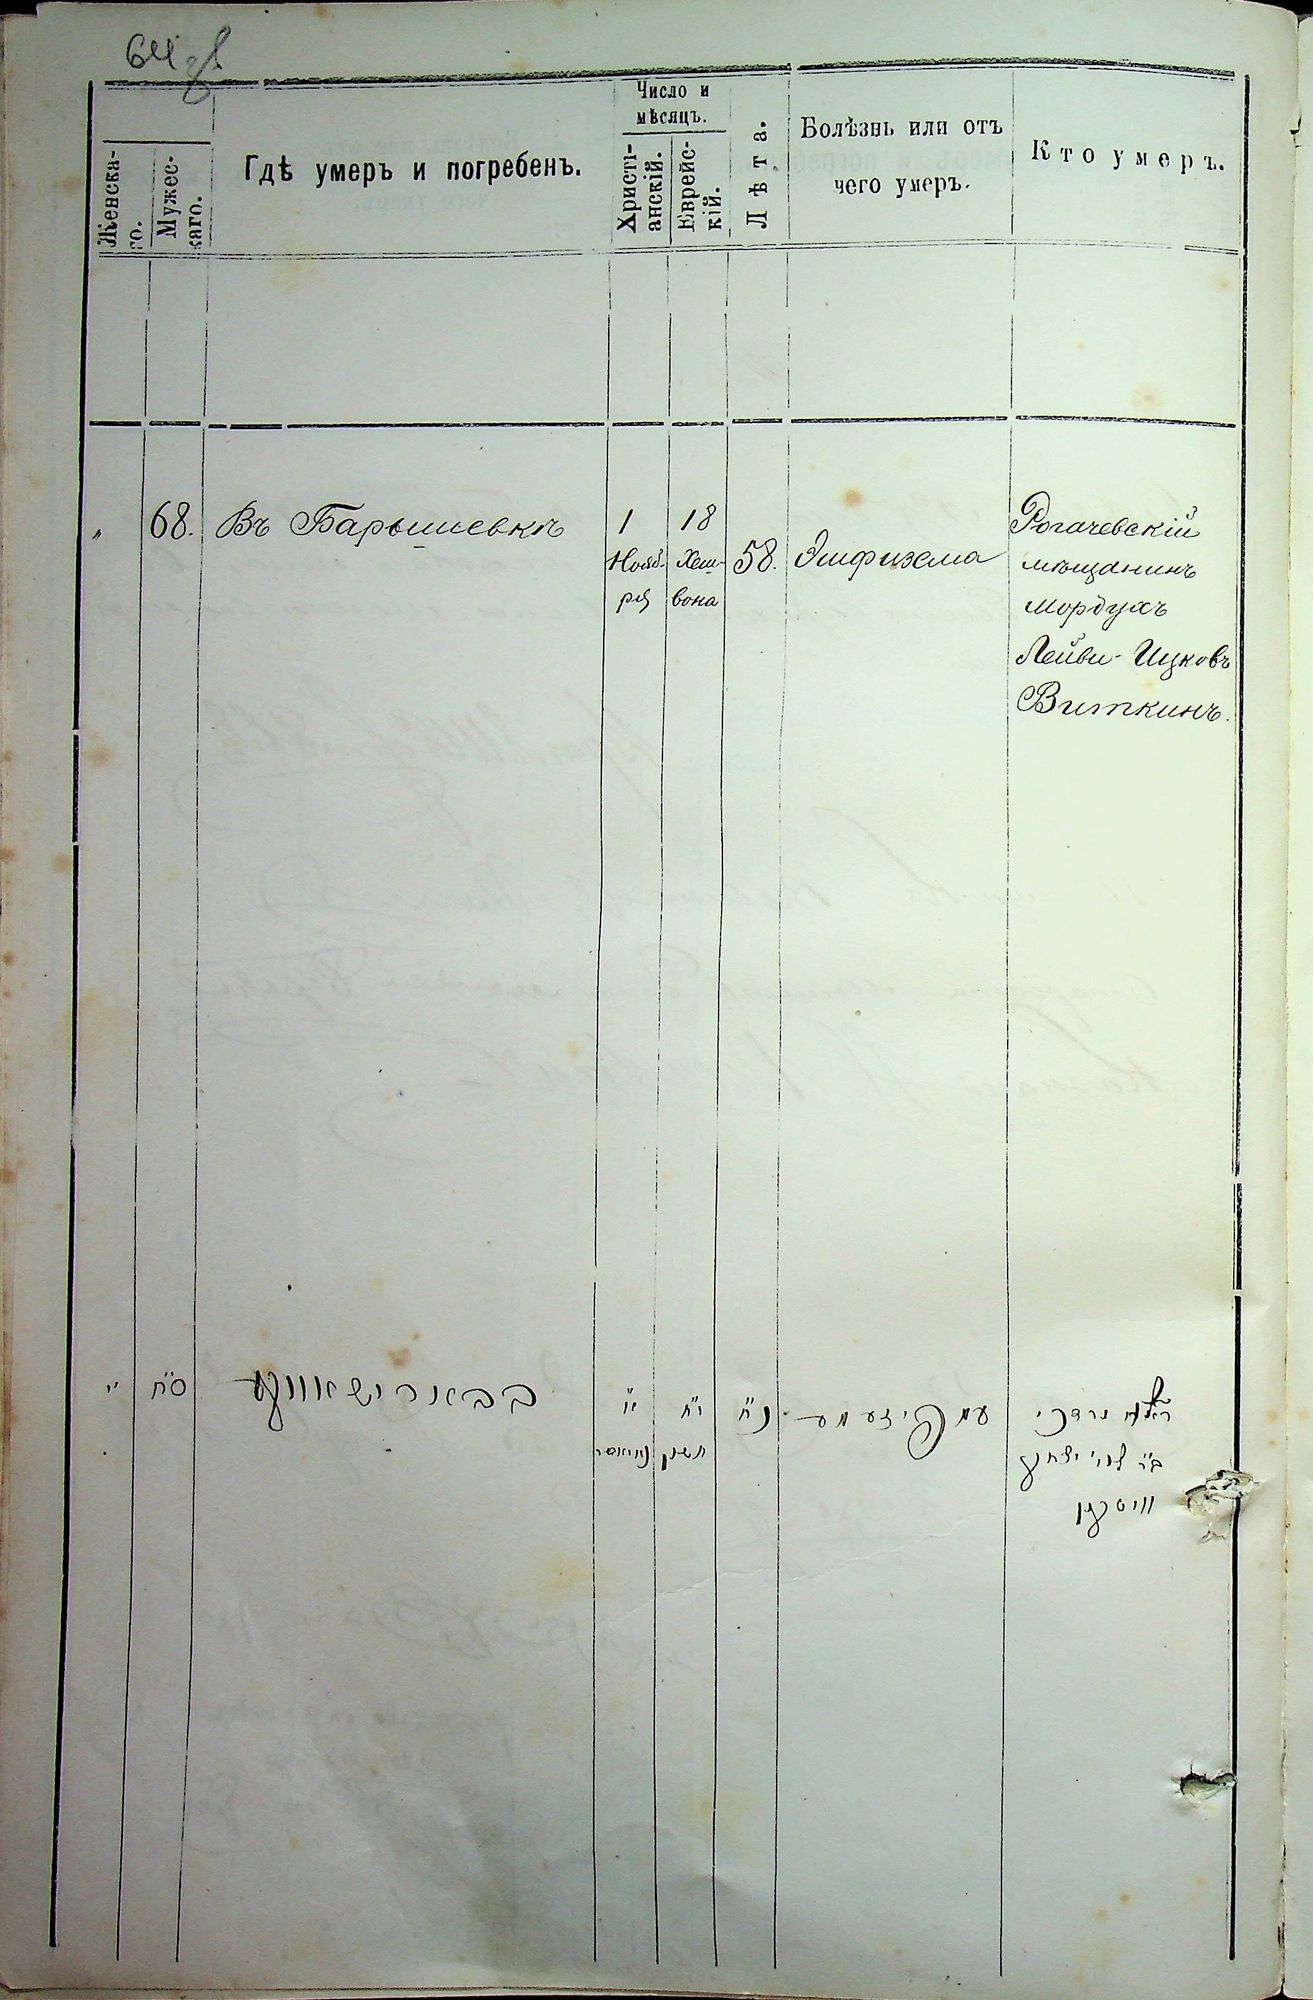 64 об
Женска-
го.
Мужес-
каго.
Гдѣ умеръ и погребенъ.
Число и
мѣсяцъ.
Христі-
анскій.
Еврейс-
кій.
Лѣта.
Болѣзнь или отъ
чего умеръ.
Кто умеръ.
„
68.
Въ Барышевкѣ
1
Нояб-
ря
18
Хеш-
вона
58.
Эмфизма
Рогачевскій
мѣщанинъ
Мордухъ
Лейви-Ицковъ
Виткинъ.
"
ס״ח
בבארישאווקע
א׳
נאיאבר
י״ח
חשון
נ״ח
עמפיזעמע
מרדכי
ב״ר לוי יצחק
וויטקין